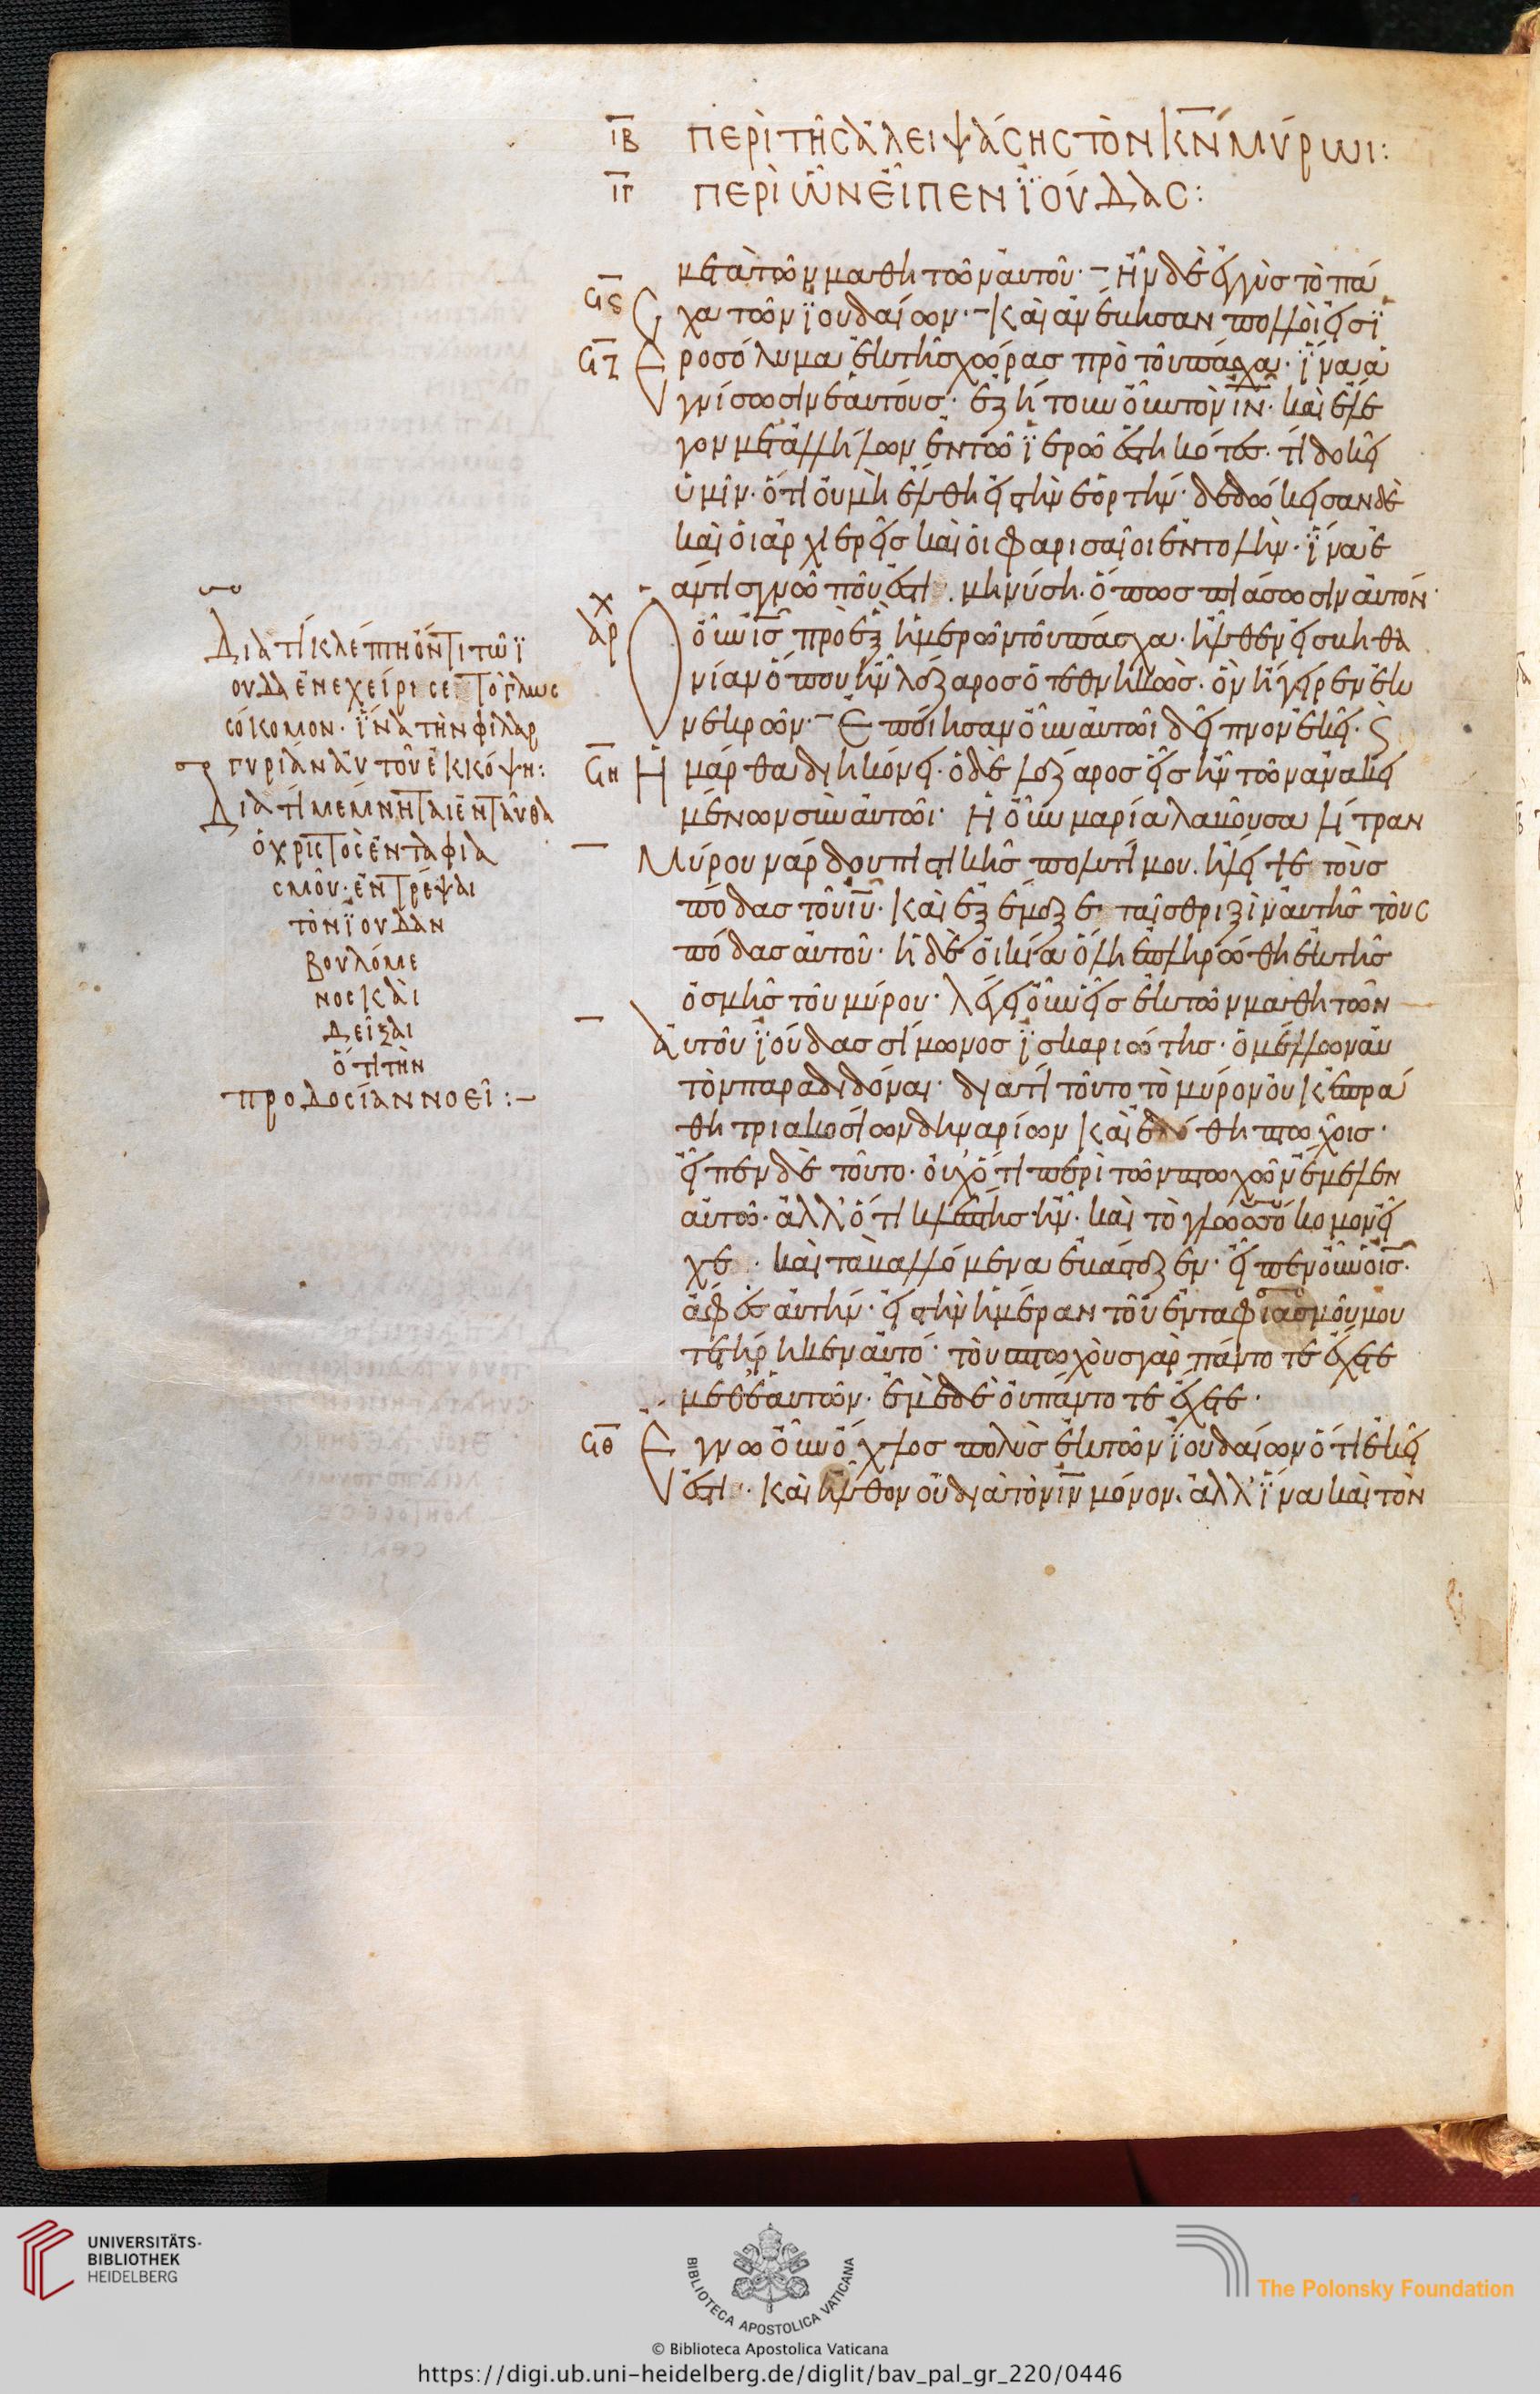 ΙΒ ΠΕΡῚ ΤΗ͂Σ ἈΛΕΙΨΆΣΗΣ ΤῸΝ Κ̅Ν̅ ΜΎΡΩΙ:
ΙΓ ΠΕΡῚ ὯΝ ΕἾΠΕΝ ἸΟΎΔΑΣ:
μετὰ τῶν μαθητῶν αὐτοῦ· ἦν δὲ ἐγγὺς τὸ πά
ϛϛ σχα τῶν ϊουδαίων· καὶ ἀνέβησαν πολλοὶ εἰς ϊ
ϛζ εροσόλυμα ἐκ τῆς χώρας πρὸ τοῦ πάσχα· ἵνα ἁ
γνίσωσιν ἑαυτούς· ἐζήτουν οὖν τὸν ι̅ν̅· καὶ ἔλε
γον μετ' ἀλλήλων ἐν τῶ ϊερῶ ἑστηκότες· τί δοκεῖ
ὑμῖν· ὅτι οὐ μὴ ἔλθη εἰς τὴν ἑορτήν· δεδώκεισαν δὲ
καὶ οἱ ἀρχιερεῖς καὶ οἱ φαρισαῖοι ἐντολὴν· ἵνα ἐ
άν τις γνῶ ποῦ ἐστι· μηνύση· ὅπως πιάσωσιν αὐτόν·
ὁ οὖν ι̅ς̅ πρὸ ἓξ ἡμερῶν τοῦ πάσχα· ἦλθεν εἰς βηθα
νίαν ὅπου ἦν λάζαρος ὁ τεθνηκὼς· ὃν ἤγειρεν ἐκ
νεκρῶν· Ἐποίησαν οὖν αὐτῶι δεῖπνον ἐκεῖ·
ϛη Ἡ μάρθα διηκόνει· ὁ δὲ λάζαρος εἷς ἦν τῶν ἀνακει
μένων σὺν αὐτῶι· Ἡ οὖν μαρία λαβοῦσα λίτραν
Μύρου νάρδου πιστικῆς πολυτίμου· ἤλειψε τοὺς
πόδας τοῦ ι̅υ̅· καὶ ἐξέμαξε ταῖς θριξὶν αὐτῆς τοὺς
πόδας αὐτοῦ· ἡ δὲ οἰκία ὅλη ἐπληρώθη ἐκ τῆς
ὀσμῆς τοῦ μύρου· λέγει οὖν εἷς ἐκ τῶν μαθητῶν
Αὐτοῦ ϊούδας σίμωνος ϊσκαριώτης· ὁ μέλλων αὐ
τὸν παραδιδόναι· διατί τοῦτο τὸ μύρον οὐκ ἐπρά
θη τριακοσίων δηναρίων καὶ ἐδόθη πτωχοῖς·
εἶπεν δὲ τοῦτο· οὐχ ὅτι περὶ τῶν πτωχῶν ἔμελεν
αὐτῶ· ἀλλ' ὅτι κλέπτης ἦν· καὶ τὸ γλωσσόκομον εἶ
χε· καὶ τὰ βαλλόμενα ἐβάσταζεν· εἶπεν οὖν ὁ ι̅ς̅·
ἄφες αὐτήν· εἰς τὴν ἡμέραν τοῦ ἐνταφιασμοῦ μου
τετήρηκεν αὐτό· τοὺς πτωχοὺς γὰρ πάντοτε ἔχετε
μεθ' ἑαυτῶν· ἐμὲ δὲ οὐ πάντοτε ἔχετε·
ϛθ Ἔγνω οὖν ὄχλος πολὺς ἐκ τῶν ϊουδαίων ὅτι ἐκεῖ
ἐστι· καὶ ἦλθον οὐ διὰ τὸν ι̅ν̅ μόνον· ἀλλ' ἵνα καὶ τὸν
Διατί κλέπτη ὄντι τῶ ϊ
ούδα ἐνεχείρισε τὸ γλωσ
σόκομον· ἵνα τὴν φιλαρ
γυρίαν αὐτοῦ ἐκκόψη:
Διατί μέμνηται ἐνταῦθα
ὁ χριστὸς ἐνταφια
σμοῦ· ἐντρέψαι
τὸν ϊούδαν
βουλόμε
νος καὶ
δεῖξαι
ὅτι τὴν
προδοσίαν νοεῖ:–
UNIVERSITÄTS-
BIBLIOTHEK
HEIDELBERG
BIBLIOTECA APOSTOLICA VATICANA
The Polonsky Foundation
© Biblioteca Apostolica Vaticana
https://digi.ub.uni-heidelberg.de/diglit/bav_pal_gr_220/0446